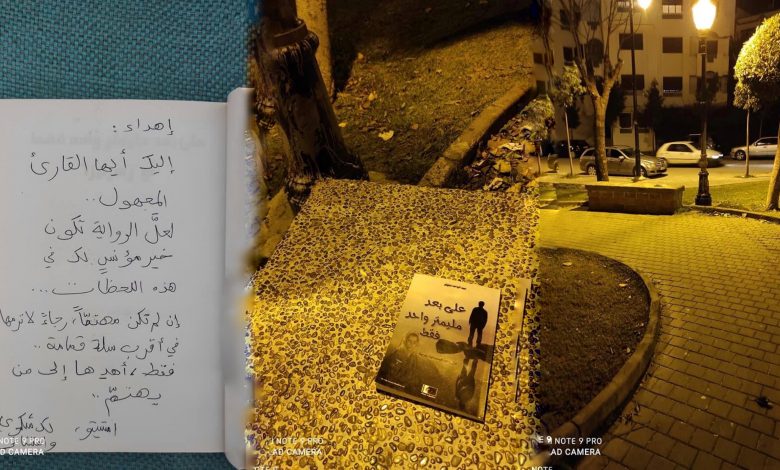 إهداء :
إليك أيها القارئ
المجهول..
لعلّ الرواية تكون
خير مؤنس لك في
هذه اللحظات...
إن لم تكن مهتمّاً، رجاءً لا ترمها
في أقرب سلة قمامة ..
فقط، أهدها إلى من
يهتمّ..
لك شكري
NOTE 9 PRO
AD CAMERA
على بعد
مليمتر واحد
فقط
NOTE 9 PRO
AD CAMERA
NOTE 9 PRO
AD CAMERA